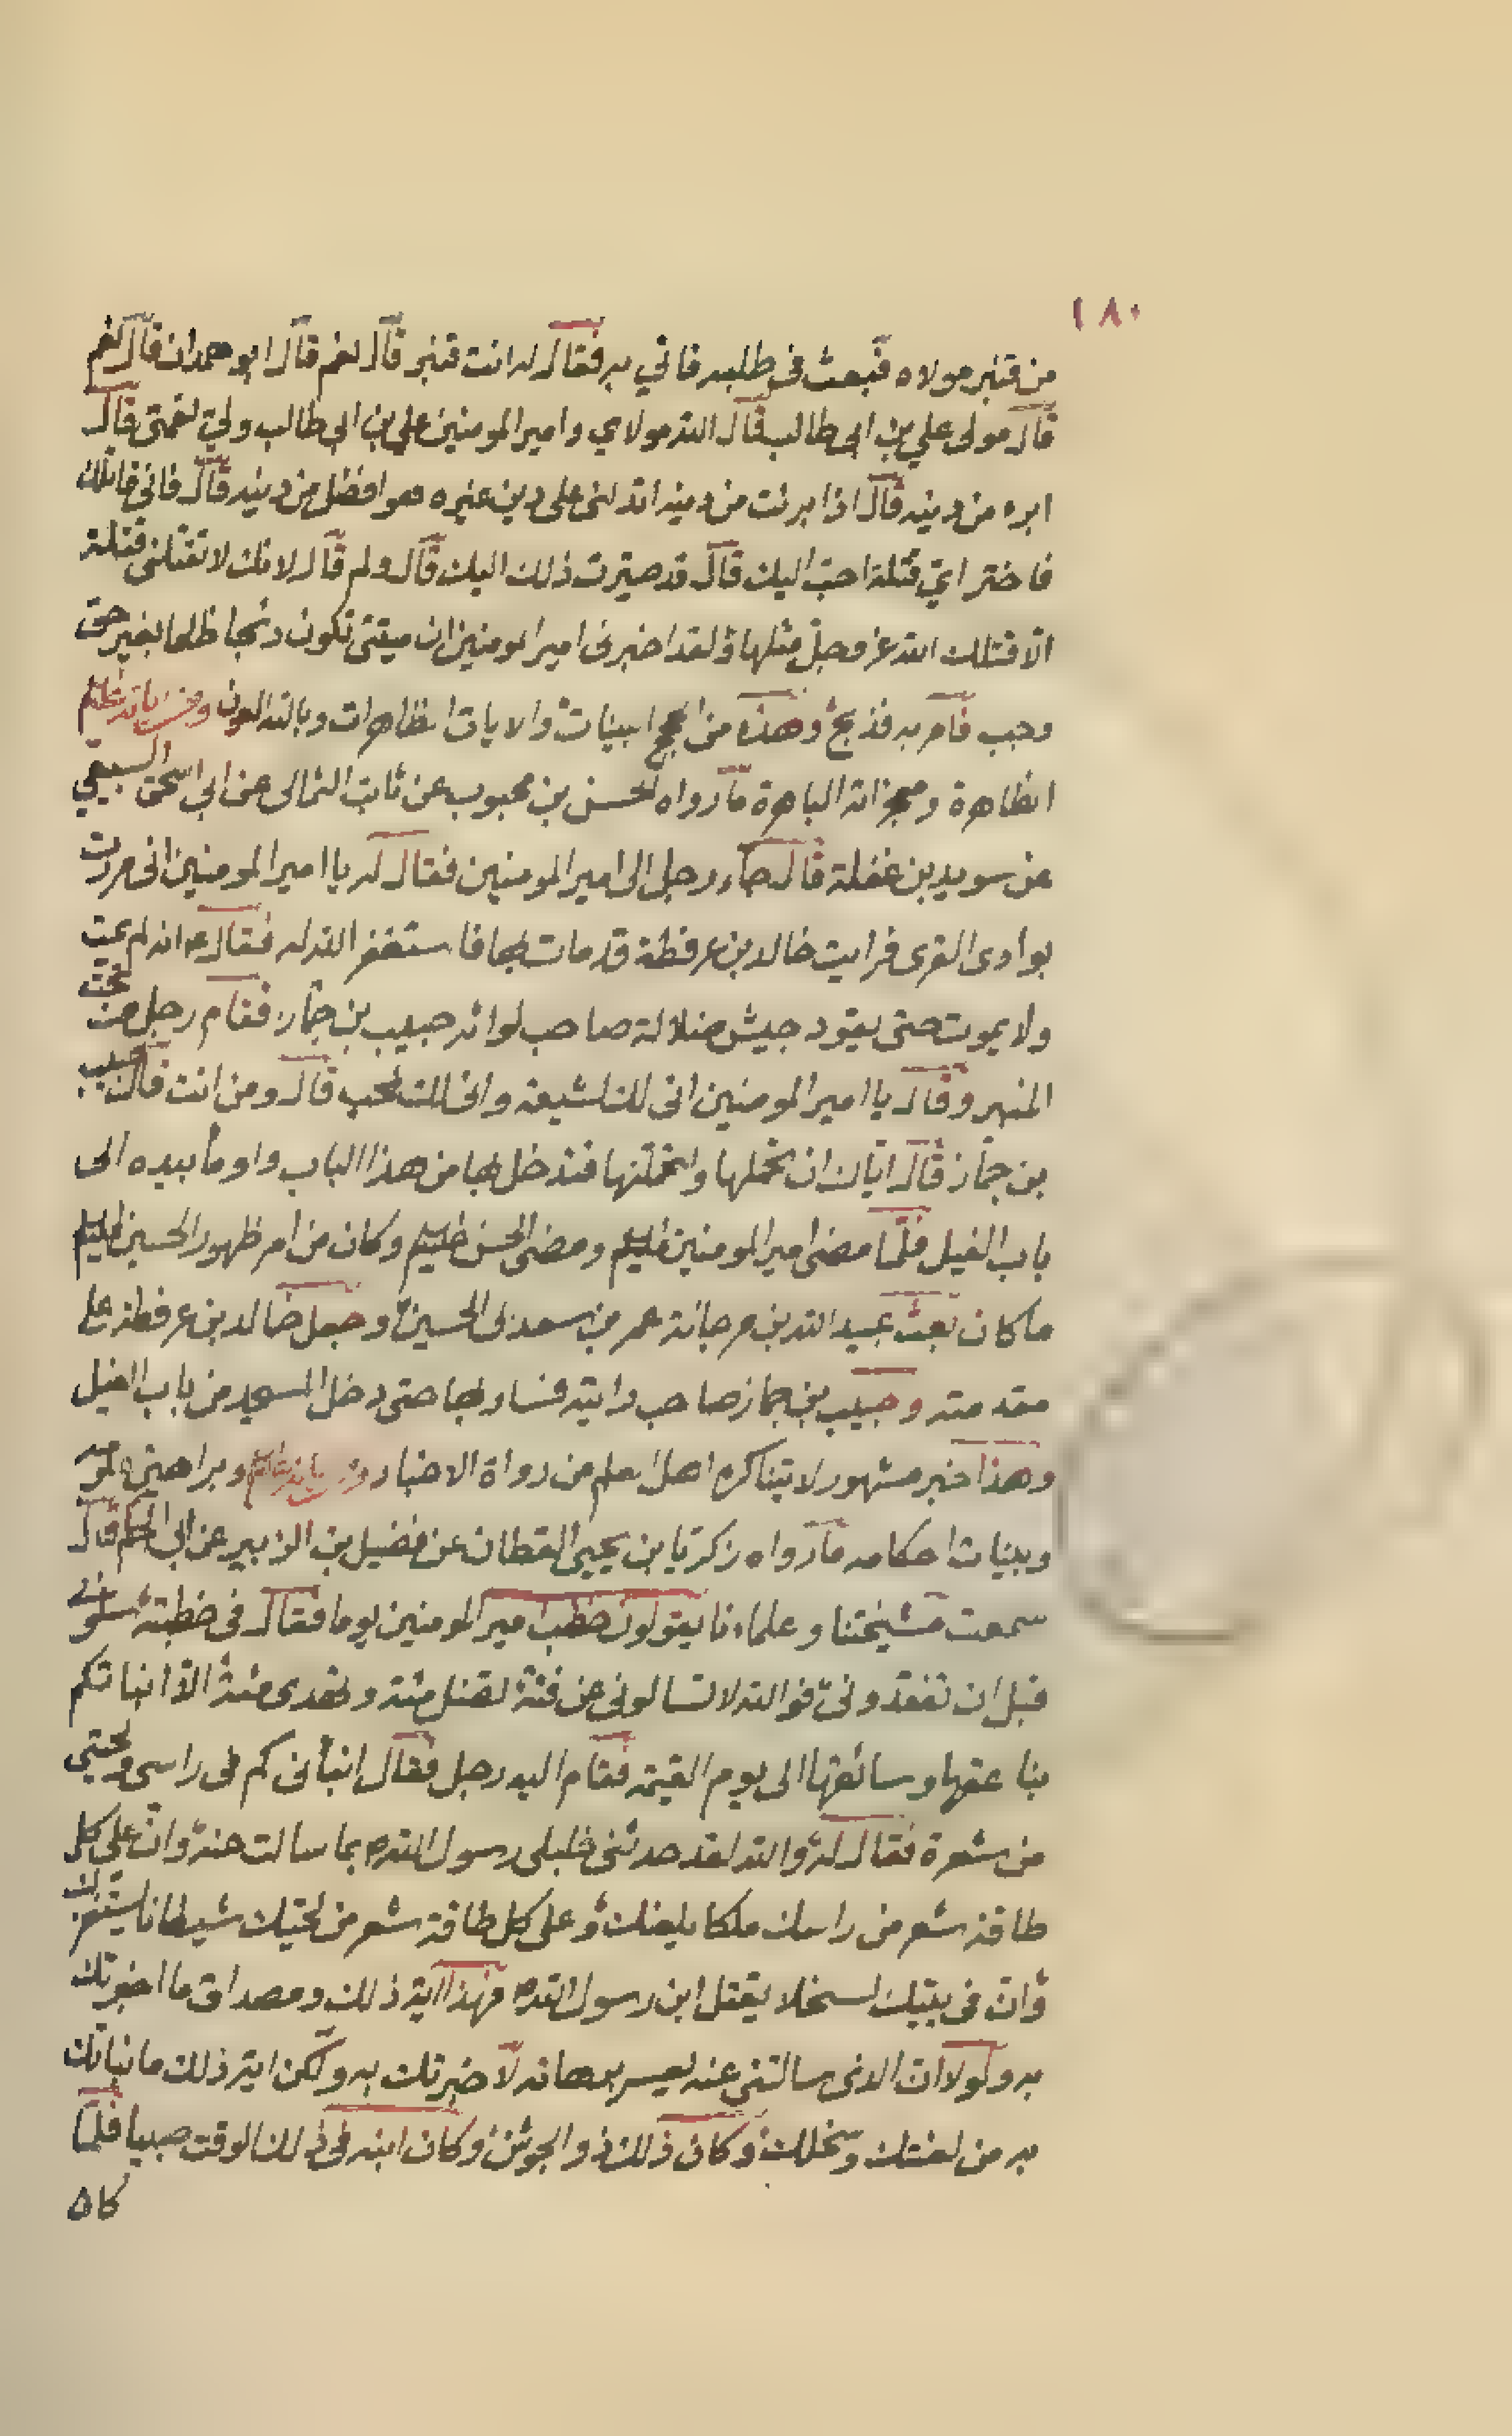 ١٨٠
من قنبر مولاه فبعث فى طلبه فاتي به فقال له انت قنبر قال نعم قال ابو همدان قال نعم
قال مولى علي بن ابى طالب قال الله مولاي وامير المومنين علي بن ابي طالب ولي نعمتى قال
ابرء من دينه قال اذا برئت من دينه تدلنى على دين غيره هو افضل من دينه قال فانى قاتلك
فاختر اي قتلة احب اليك قال قد صيرت ذلك اليك قال ولم قال لانك لا تقتلنى قتلة
الا قتلك الله عز وجل مثلها ولقد اخبرنى امير المومنين ان ميتتى تكون ذبحا ظلما بغير حق
وجب فامر به فذبح وهذه من الحجج البينات والايات الظاهرات وبالله العون ومن اياته عليه السلم
الظاهرة ومعجزاته الباهرة ما رواه الحسن بن محبوب عن ثابت الثمالى عن ابي اسحق السبيعي
عن سويد بن غفلة قال جاء رجل الى امير المومنين فقال له يا امير المومنين انى مررت
بوادى القرى فرايت خالد بن عرفطة قد مات بها فاستغفر الله له فقال ع انه لم يمت
ولا يموت حتى يقود جيش ضلالة صاحب لوائه حبيب بن جماز فقام رجل من تحت
المنبر وقال يا امير المومنين انى لك لشيعة وانى لك لمحب قال ومن انت قال انا حبيب
بن جماز قال اياك ان تحملها ولتحملنها فتدخل بها من هذا الباب واومأ بيده الى
باب الفيل فلما مضى امير المومنين عليه السلم ومضى الحسن عليه السلم وكان من امر ظهور الحسين عليه السلم
ما كان بعث عبيد الله بن مرجانة عمر بن سعد الى الحسين ع وجعل خالد بن عرفطة على
مقدمته وحبيب بن جماز صاحب رايته فسار بها حتى دخل المسجد من باب الفيل
وهذا خبر مشهور لا يتناكره اهل العلم من رواة الاخبار ومن اياته عليه السلم وبراهين
وبينات احكامه ما رواه زكريا بن يحيى القطان عن فضيل بن الزبير عن ابي الحكم قال
سمعت مشيختنا وعلماءنا يقولون خطب امير المومنين يوما فقال فى خطبته سلونى
قبل ان تفقدونى فوالله لا تسالونى عن فئة تضل مئة وتهدى مئة الا انباتكم
بناعقها وسائقها الى يوم القيمة فقام اليه رجل فقال انبأنى كم فى راسى ولحيتي
من شعرة فقال له والله لقد حدثنى خليلى رسول الله ص بما سالت عنه وان على كل
طاقة شعر من راسك ملكا يلعنك وعلى كل طاقة شعر من لحيتك شيطانا يستفزك
وان فى بيتك لسخلا يقتل ابن رسول الله ص فهذا اية ذلك ومصداق ما اخبرتك
به ولولا ان الذى سالتني عنه يعسر برهانه لاخبرتك به ولكن اية ذلك ما نباتك
به من لعنتك وسخلك وكان ذلك ذو الجوشن وكان ابنه فى ذلك الوقت صبيا فلما
كان